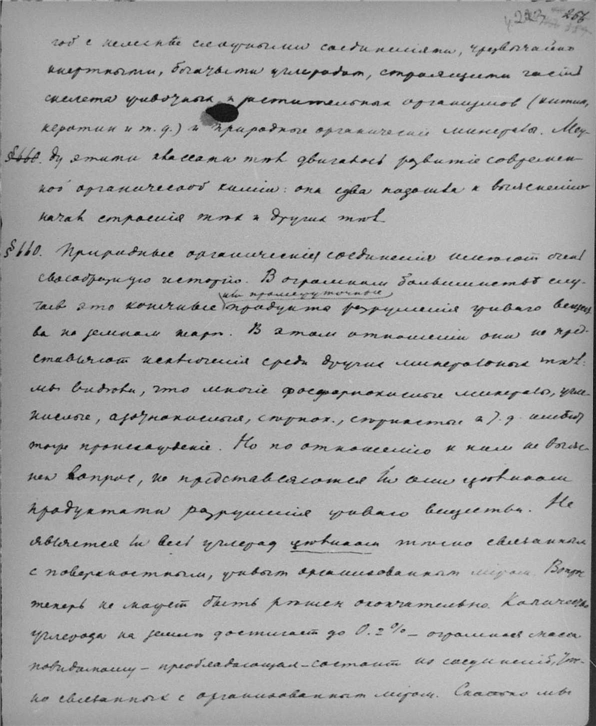 256
гоб с нелегкѣ сложными соединенiями, чрезвычайно
инертными, богатыми углеродом, строящими части
скелета животных и растительных организмов (хитин,
кератин и т.д.) и природные органическiе минералы. Меж-
ду этими классами тѣл двигалось развитiе современ-
ной органической химiи: она едва подошла к выясненiю
начал строенiя тѣх и других тѣл.
§ 660. Природные органическiя соединенiя имеют очень
своеобразную исторiю. В огромном большинствѣ слу-
чаев это конечные или промежуточные продукты разрушенiя живого вещест-
ва на земном шарѣ. В этом отношенiи они не пред-
ставляют исключенiя среди других минеральных тѣл:
мы видѣли, что многiе фосфорнокислые минералы, угле-
кислые, азотнокислые, сѣрнок., сѣрнистые и т.д. имеют
тоже происхожденiе. Но по отношенiю к ним не выяс-
нен вопрос, не представляются ли они цѣликом
продуктами разрушенiя живого вещества. Не
является ли весь углерод цѣликом тѣсно связанным
с поверхностным, живым организованным мiром. Вопрос
теперь не может быть рѣшен окончательно. Количество
углерода на землѣ достигает до 0.2% – огромная масса
повидимому – преобладающая – состоит из соединенiй, тѣс-
но связанных с организованным мiром. Сколько мы